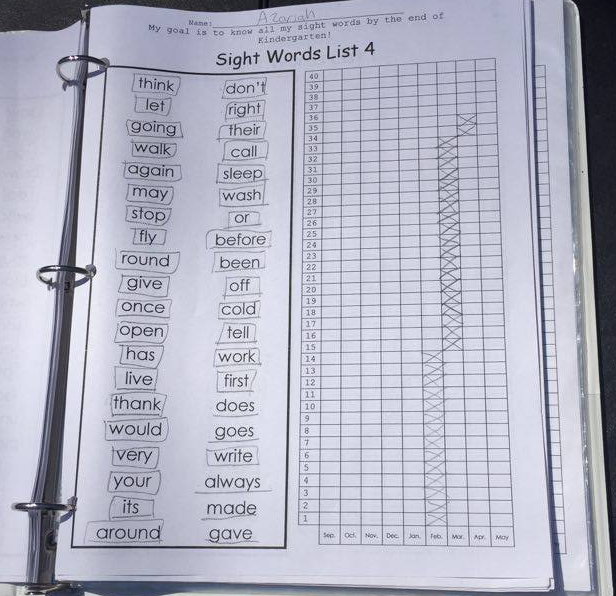 Name: Azariah
My goal is to know all my sight words by the end of
Kindergarten!
Sight Words List 4
think don't
let right
going their
walk call
again sleep
may wash
stop or
fly before
round been
give off
once cold
open tell
has work
live first
thank does
would goes
very write
your always
its made
around gave
40
39
38
37
36
35
34
33
32
31
30
29
28
27
26
25
24
23
22
21
20
19
18
17
16
15
14
13
12
11
10
9
8
7
6
5
4
3
2
1
Sep. Oct. Nov. Dec. Jan. Feb. Mar. Apr. May